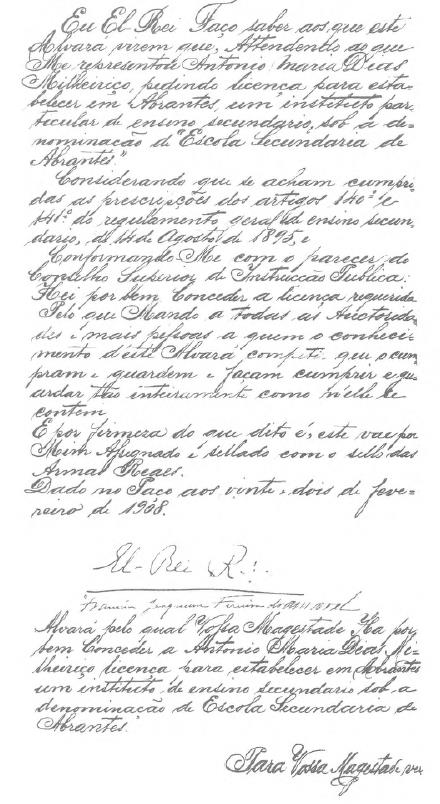 Eu El Rei Faço saber aos que este
Alvará virem que, Attendendo ao que
Me representou Antonio Maria Dias
Milheiriço, pedindo licença para esta-
belecer em Abrantes, um instituto par-
ticular de ensino secundario, sob a de-
nominação d'"Escola Secundaria de
Abrantes."
Considerando que se acham cumpri-
das as prescripções dos artigos 140º e
141º do regulamento geral d ensino secun-
dario, de 14 de Agosto de 1895, e
Conformando-Me com o parecer do
Concelho Superior de Instrucção Publica:
Hei por bem Conceder a licença requerida
Pelo que Mando a todas as Auctorida-
des e mais pessoas a quem o conheci-
mento d'este Alvará competir que o cum-
pram e guardem e façam cumprir e gu-
ardar tão inteiramente como n'elle se
contem
E por firmeza do que dito é, este vae por
Mim Assignado e sellado com o sello das
Armas Reaes.
Dado no Paço aos vinte e dois de feve-
reiro de 1908.
El-Rei R.
Joaquim Ferreira do
Alvará pelo qual Vossa Magestade Ha por
bem Conceder a Antonio Maria Dias Mi-
lheiriço licença para estabelecer em Abrantes
um instituto de ensino secundario sob a
denominação de Escola Secundaria de
Abrantes.
Para Vossa Magestade ver